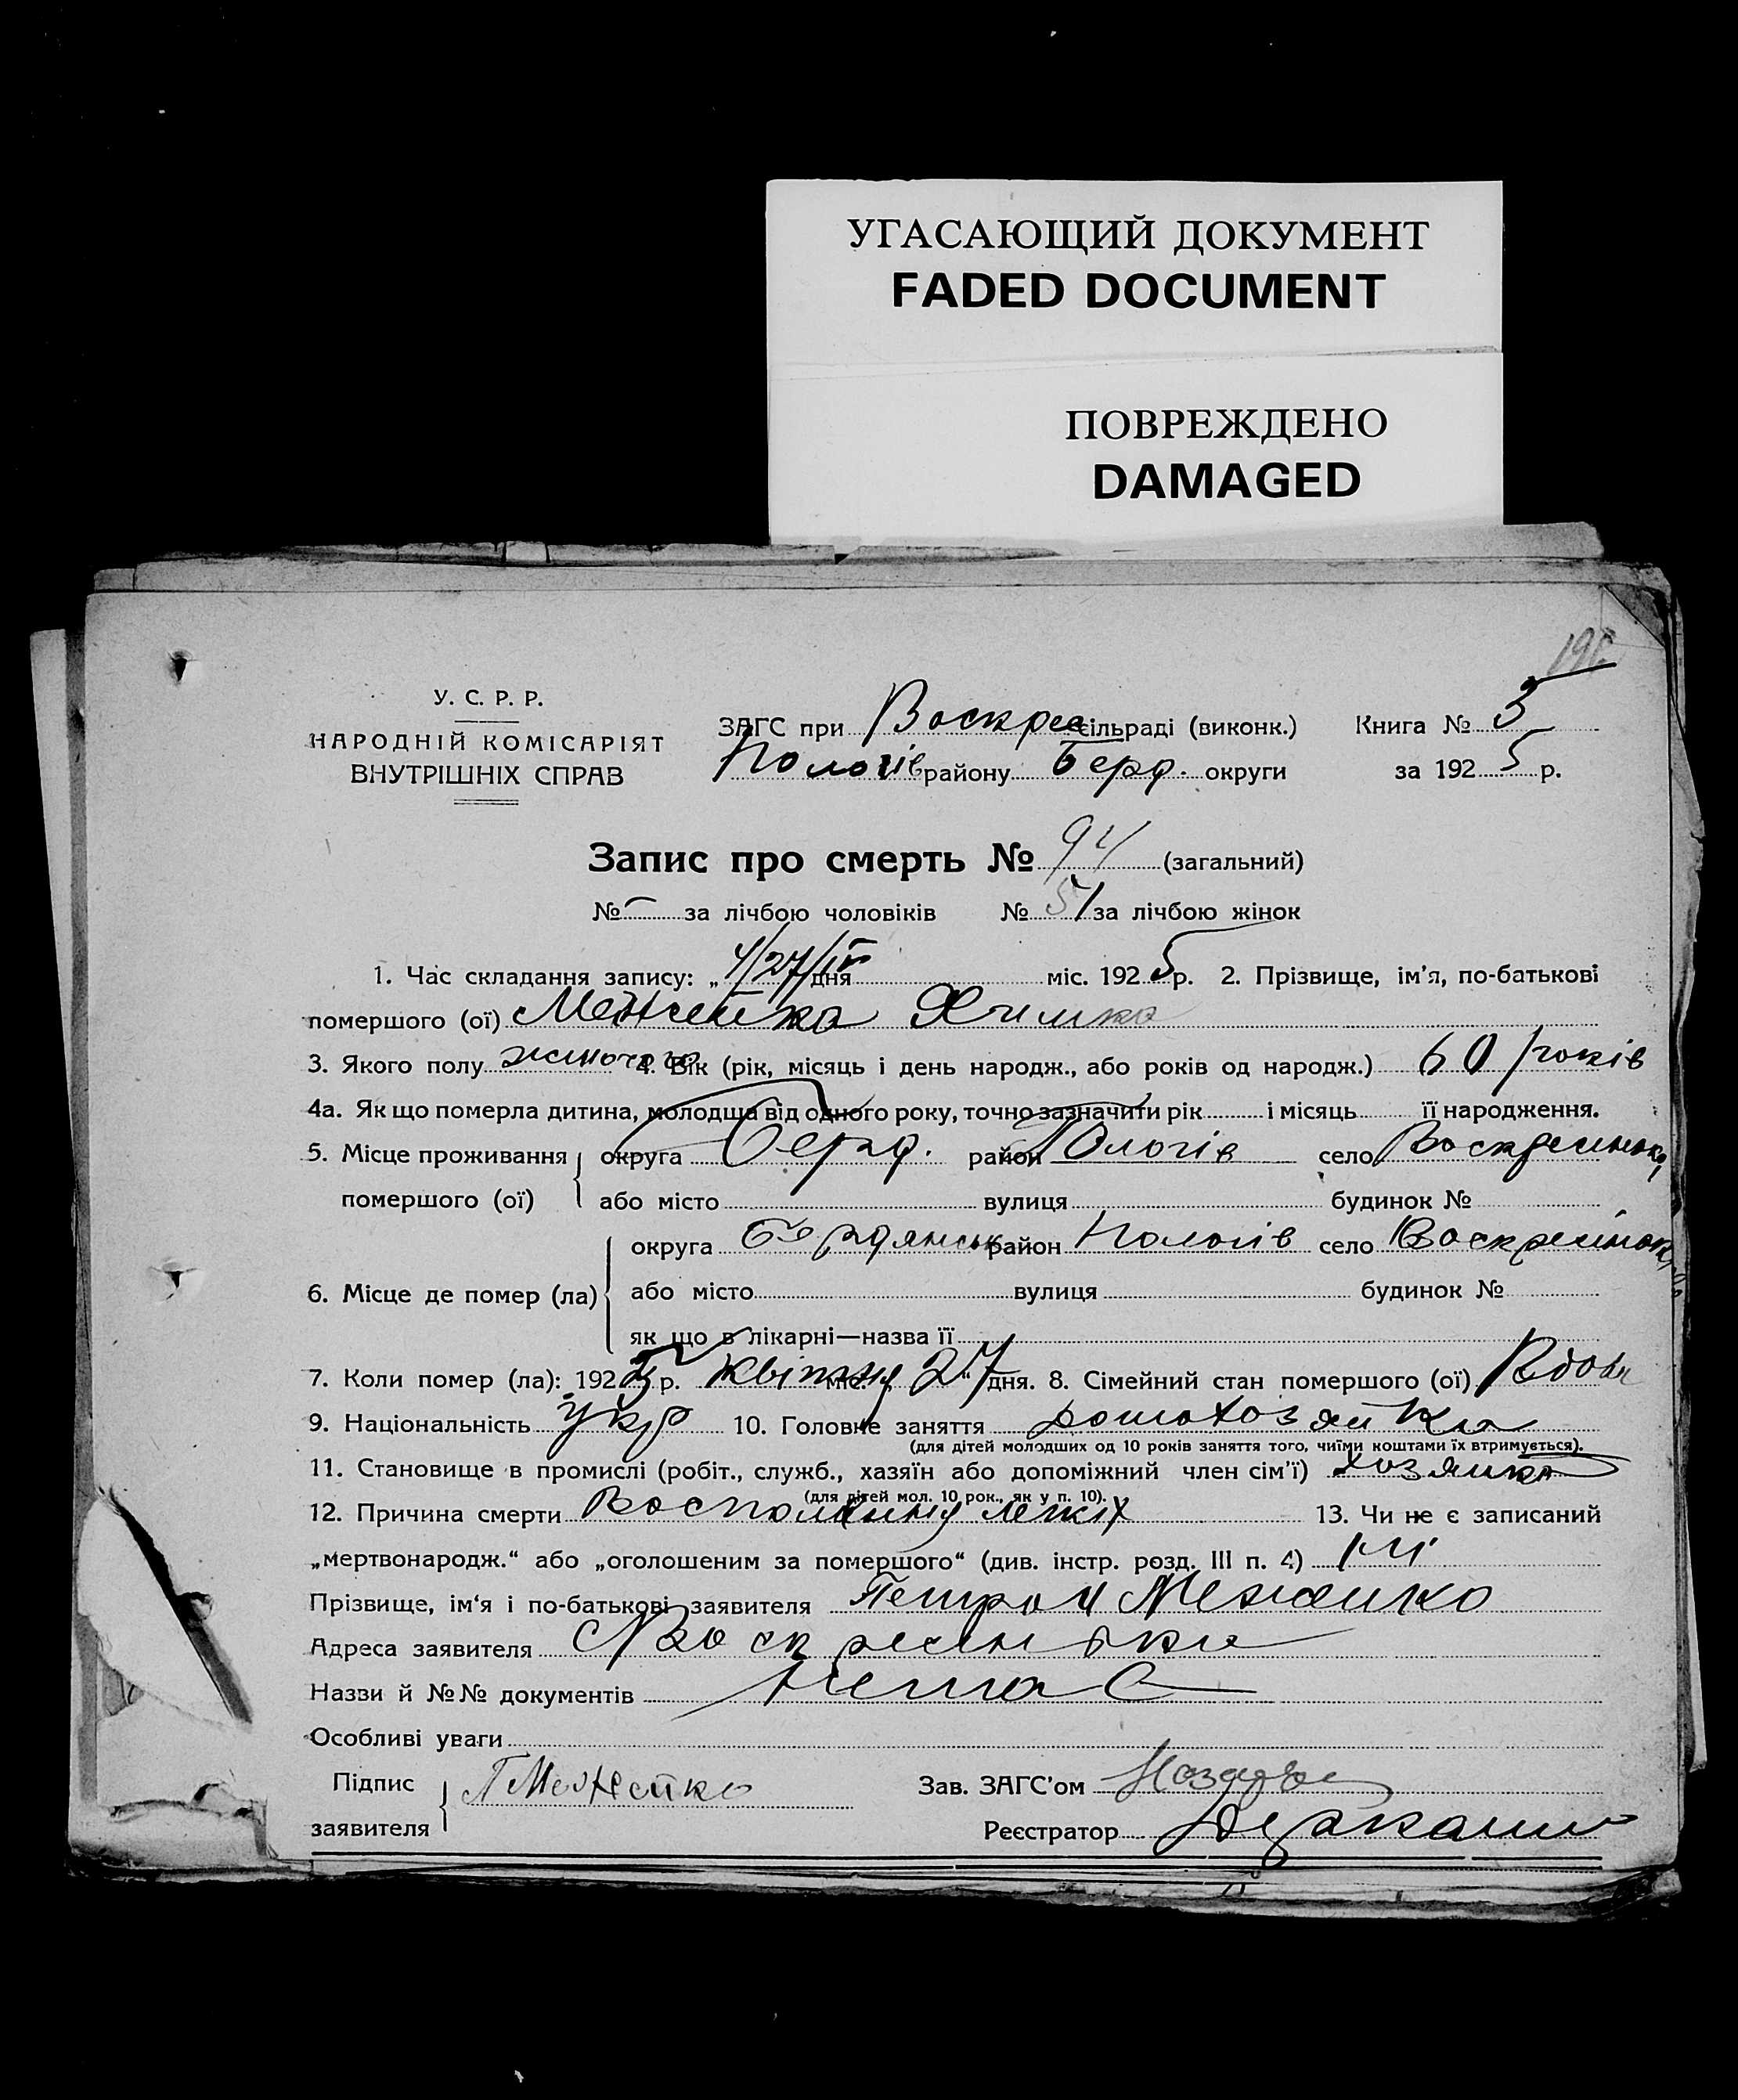 УГАСАЮЩИЙ ДОКУМЕНТ
FADED DOCUMENT
ПОВРЕЖДЕНО
DAMAGED
У. С. Р. Р.
НАРОДНІЙ КОМІСАРІЯТ
ВНУТРІШНІХ СПРАВ
ЗАГС при Воскрес сільраді (виконк.) Книга №
Пологів району Берд. округи за 192 5 р.
Запис про смерть № 94 (загальний)
№ — за лічбою чоловіків № 51 за лічбою жінок
1. Час складання запису: „ 27/IV дня міс. 192 5 р. 2. Прізвище, ім'я, по-батькові
помершого (ої) Менжейко Химка
3. Якого полу жіночого 4. Вік (рік, місяць і день народж., або років од народж.) 60 років
4а. Як що померла дитина, молодша від одного року, точно зазначити рік і місяць її народження.
5. Місце проживання округа Берд. район Пологів село Воскресенька
помершого (ої) або місто вулиця будинок №
округа Бердянськ район Пологів село Воскресінька
6. Місце де помер (ла) або місто вулиця будинок №
як що в лікарні—назва її
7. Коли помер (ла): 192 5 р. квітня міс. „ 27 " дня. 8. Сімейний стан помершого (ої) Вдова
9. Національність укр 10. Головне заняття домохозяйка
(для дітей молодших од 10 років заняття того, чиїми коштами їх втримується).
11. Становище в промислі (робіт., служб., хазяїн або допоміжний член сім'ї) хозяйка
(для дітей мол. 10 рок., як у п. 10).
12. Причина смерти Воспоління легкіх 13. Чи не є записаний
„мертвонародж." або „оголошеним за помершого" (див. інстр. розд. III п. 4) ні
Прізвище, ім'я і по-батькові заявителя Петро Менжейко
Адреса заявителя Воскресенька
Назви й №№ документів Немає
Особливі уваги
Підпис
заявителя П Менжейко
Зав. ЗАГС'ом
Реєстратор